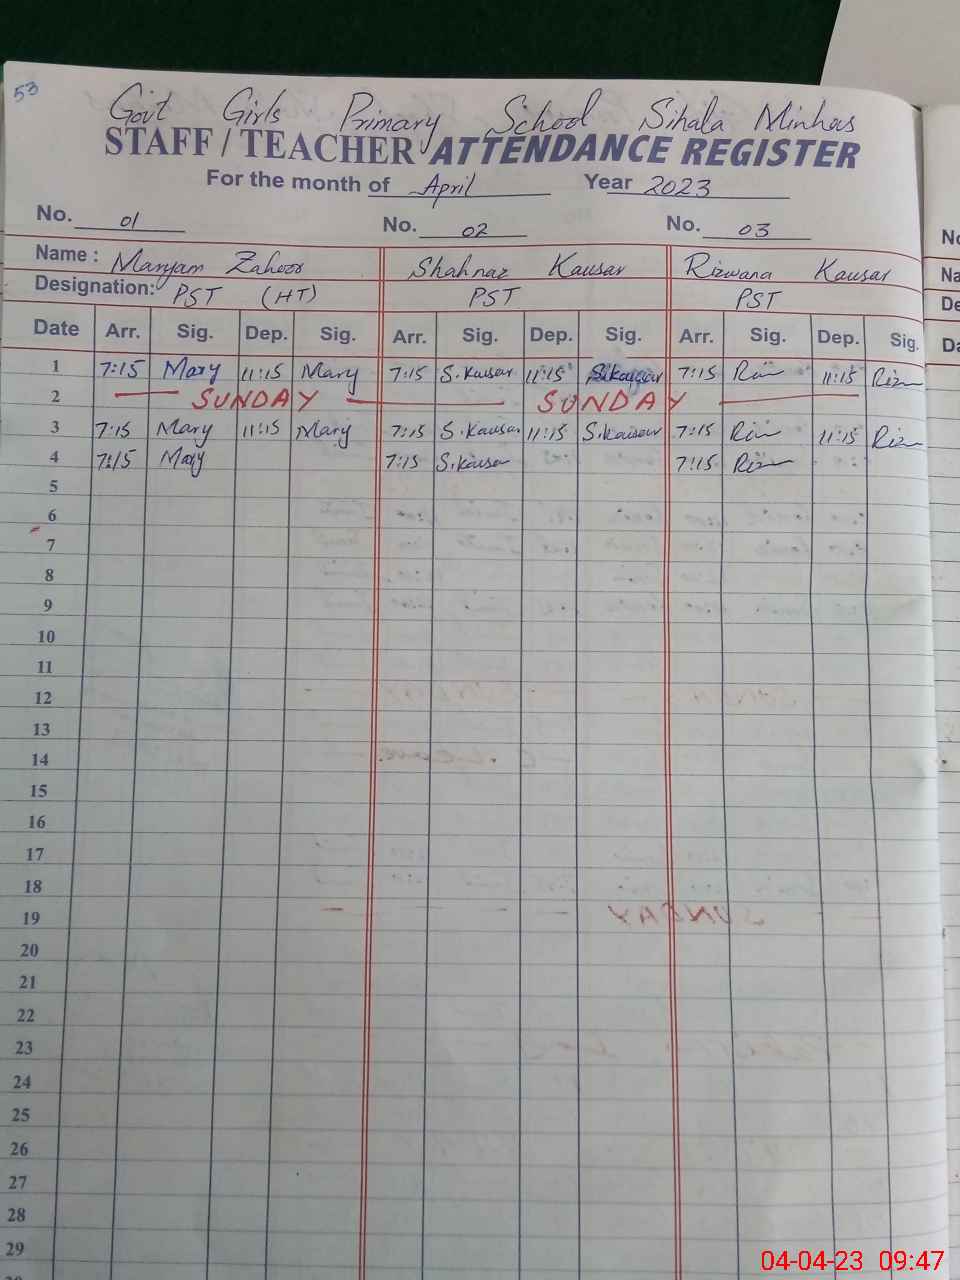 53
Govt Girls Primary School Sihala Minhas
STAFF / TEACHER ATTENDANCE REGISTER
For the month of April Year 2023
No. 01 No. 02 No. 03
Name : Maryam Zahoor Shahnaz Kausar Rizwana Kausar
Designation: PST (HT) PST PST
Date Arr. Sig. Dep. Sig. Arr. Sig. Dep. Sig. Arr. Sig. Dep. Sig.
1 7:15 Mary 11:15 Mary 7:15 S.Kausar 11:15 S.Kausar 7:15 Riz 11:15 Riz
2 SUNDAY SUNDAY
3 7:15 Mary 11:15 Mary 7:15 S.Kausar 11:15 S.Kausar 7:15 Riz 11:15 Riz
4 7:15 Mary 7:15 S.Kausar 7:15 Riz
5
6
7
8
9
10
11
12
13
14
15
16
17
18
19
20
21
22
23
24
25
26
27
28
29
04-04-23 09:47